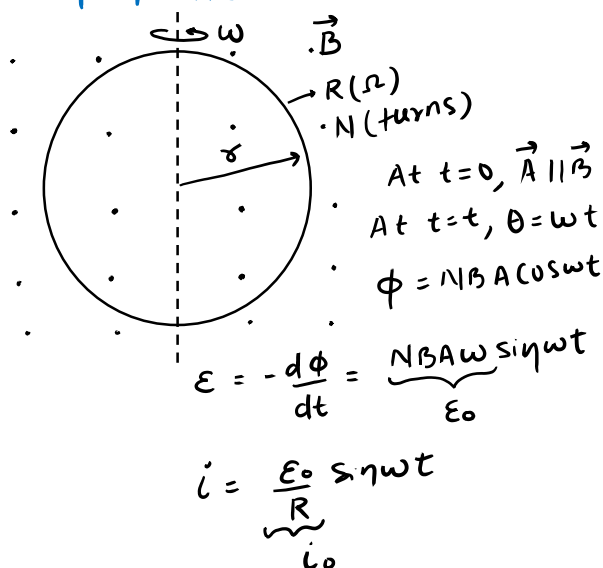 ω
.B⃗
→ R(Ω)
· N (turns)
r
At t=0, A⃗ || B⃗
At t=t, θ=ωt
ϕ = NBA cosωt
ε = - dϕ/dt = NBAω sinωt
ε₀
i = ε₀/R sinωt
i₀